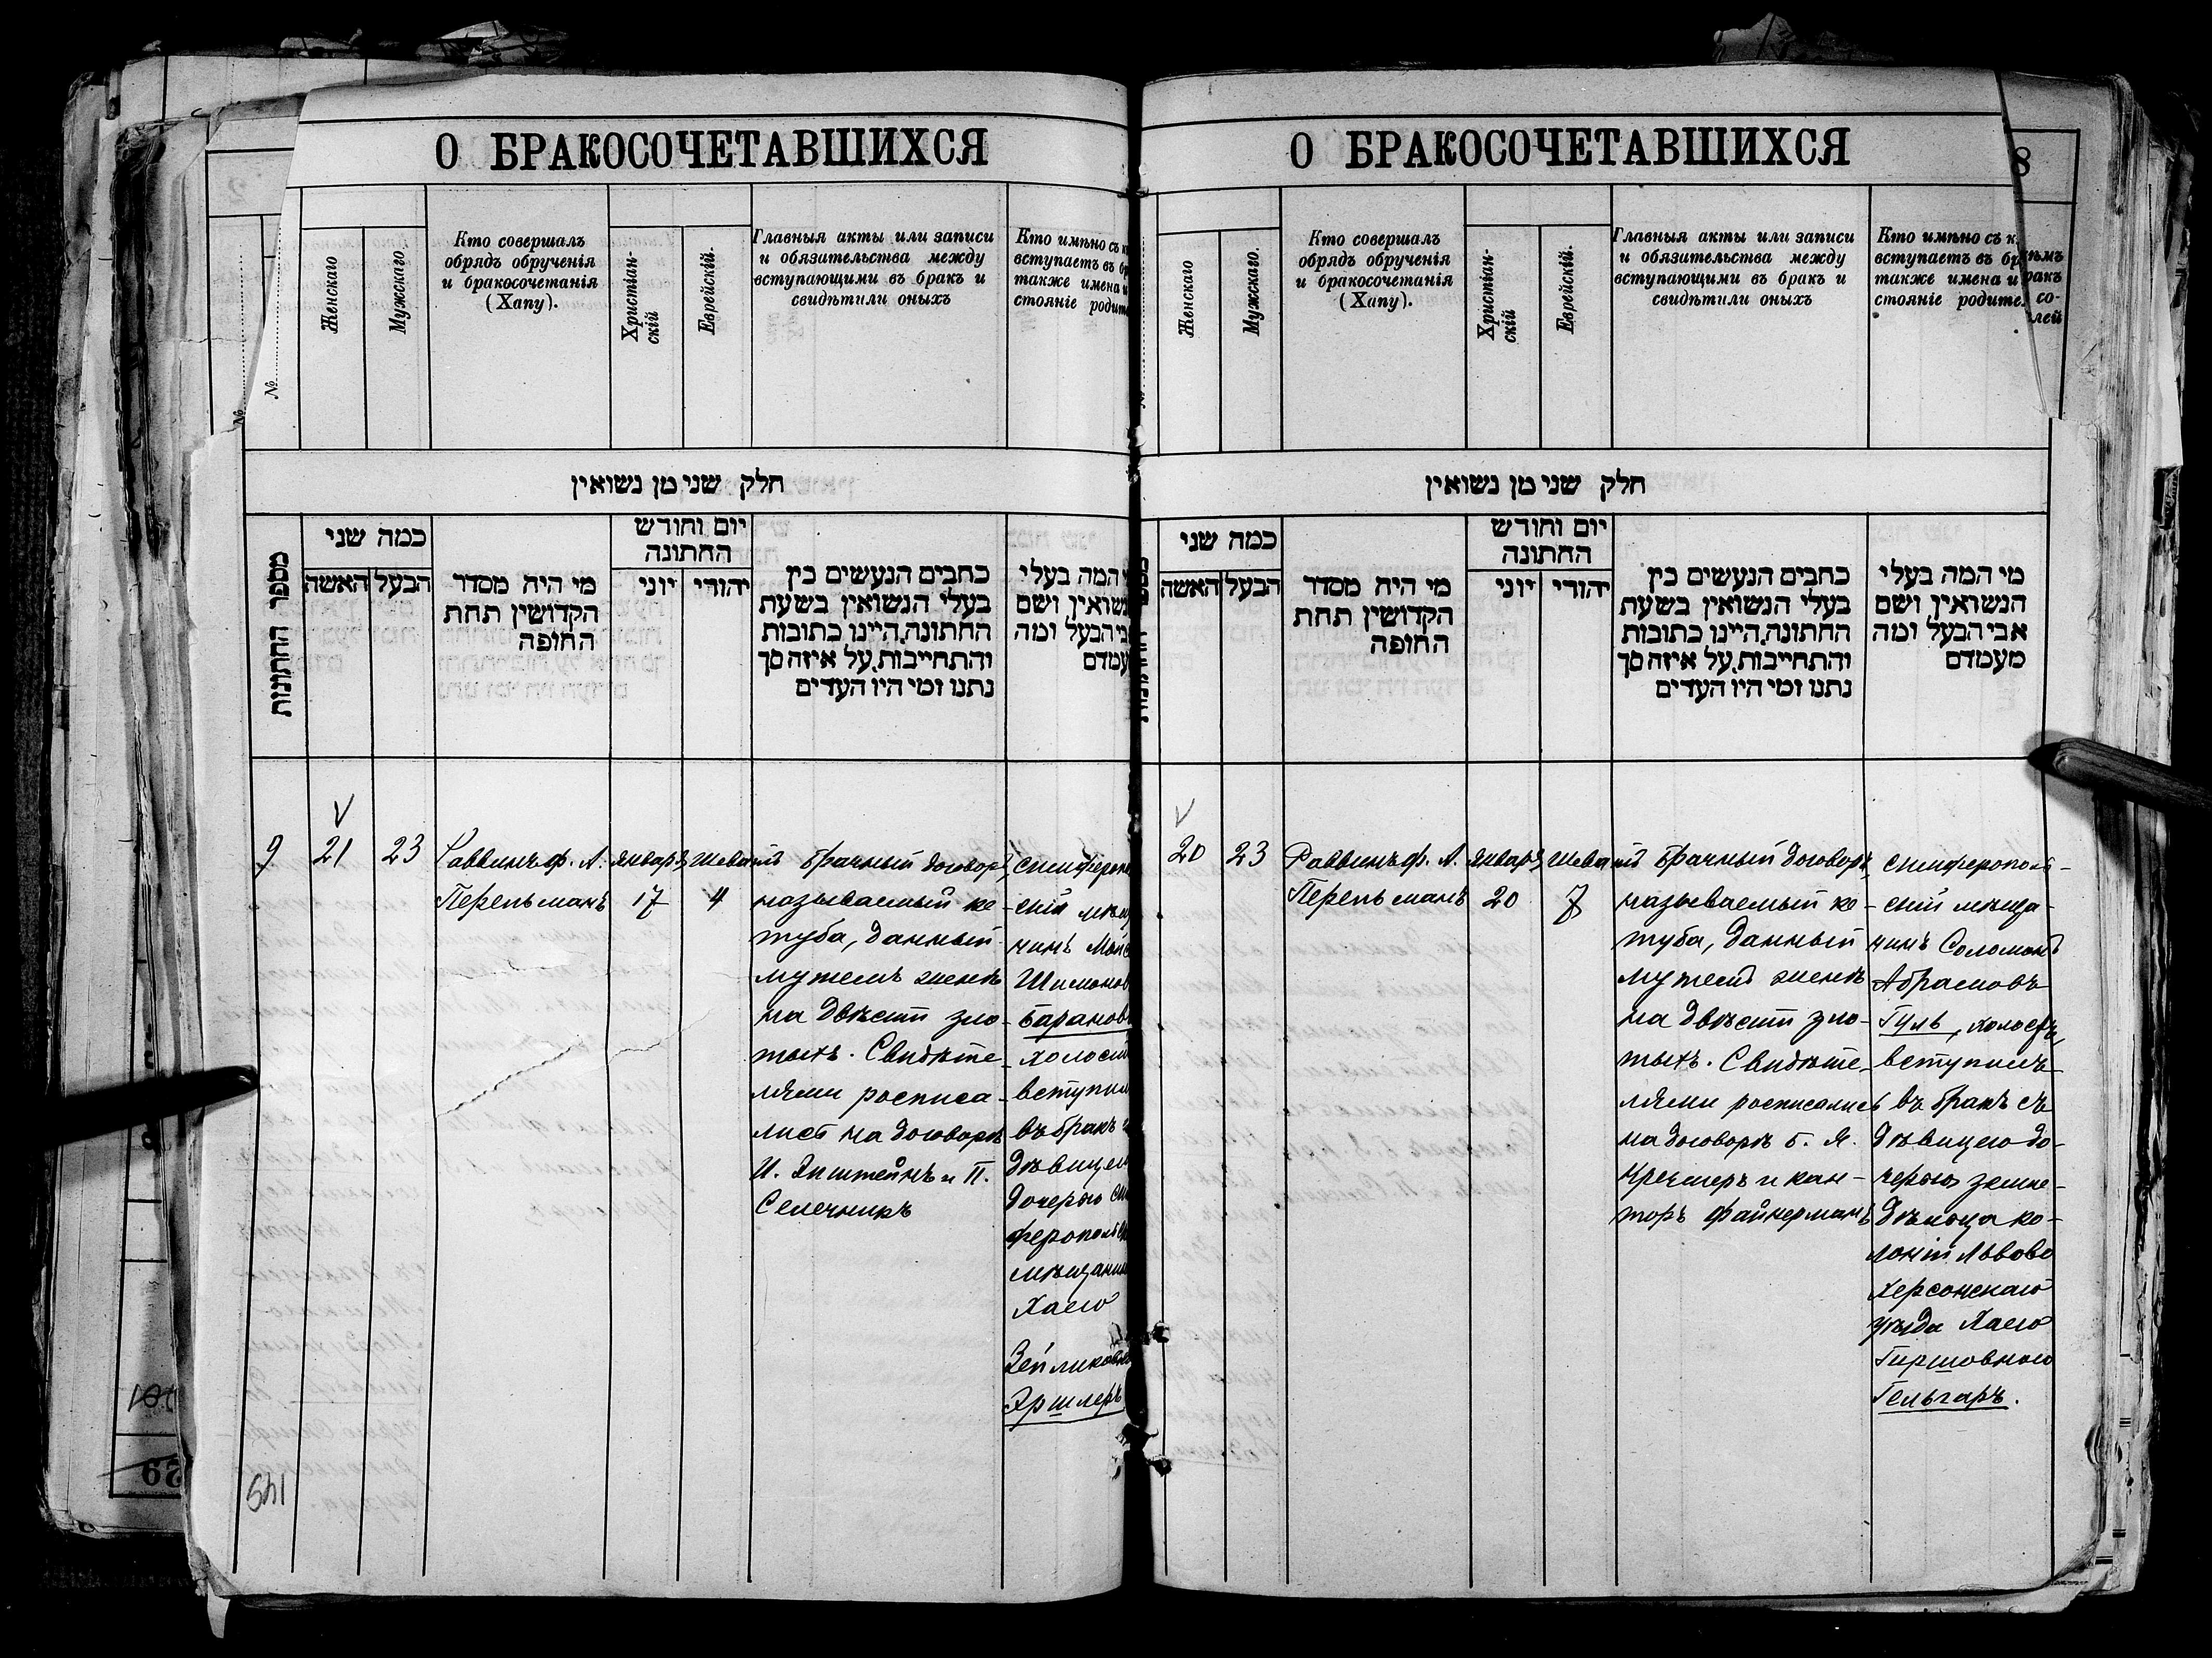 О БРАКОСОЧЕТАВШИХСЯ
№
№
Женскаго
Мужскаго
Кто совершалъ
обрядъ обрученія
и бракосочетанія
(Хапу).
Христіан-
скій
Еврейскій.
Главныя акты или записи
и обязательства между
вступающими въ бракъ и
свидѣтили оныхъ
Кто имѣно съ к
вступаетъ въ бр
также имена и
стояніе родите
חלק שני מן נשואין
מספר החתונות
כמה שני
האשה
הבעל
מי היה מסדר
הקדושין תחת
החופה
יום וחודש
החתונה
יוני
יהודי
כתבים הנעשים בין
בעלי הנשואין בשעת
החתונה, היינו כתובות
והתחייבות, על איזה סך
נתנו ומי היו העדים
המה בעלי
נשואין ושם
הבעל ומה
עמדם
9
21
23
Раввинъ ф. А.
Перельманъ
январь
17
Шеватъ
4
Брачный договоръ,
называемый ке-
туба, данный
мужемъ женѣ
на двѣсти зло-
тыхъ. Свидѣте-
лями росписа-
лись на договорѣ
И. Эпштейнъ и П.
Селечникъ
симферопо
скій мѣщ
чинъ Мои
Шимонов
Баранов
холост
вступил
въ бракъ
дѣвицею
дочерью си
феропольск
мѣщанин
Хаею
Зейликовно
Эршлеръ
149
О БРАКОСОЧЕТАВШИХСЯ
8
Женскаго
Мужскаго.
Кто совершалъ
обрядъ обрученія
и бракосочетанія
(Хапу).
Христіан-
скій
Еврейскій.
Главныя акты или записи
и обязательства между
вступающими въ бракъ и
свидѣтили оныхъ
Кто имѣно съ к
вступаетъ въ бр
также имена и
стояніе родите
ѣмъ
ракъ
со-
лей
חלק שני מן נשואין
כמה שני
האשה
הבעל
מי היה מסדר
הקדושין תחת
החופה
יום וחודש
החתונה
יוני
יהודי
כתבים הנעשים בין
בעלי הנשואין בשעת
החתונה, היינו כתובות
והתחייבות, על איזה סך
נתנו ומי היו העדים
מי המה בעלי
הנשואין ושם
אבי הבעל ומה
מעמדם
20
23
Раввинъ ф. А.
Перельманъ
январь
20
Шеватъ
7
Брачный договоръ,
называемый ке-
туба, данный
мужемъ женѣ
на двѣсти зло-
тыхъ. Свидѣте-
лями росписались
на договорѣ Б. Я.
Кремеръ и кан-
торъ Файнерманъ
симферополь-
скій мѣща-
нинъ Соломонъ
Абрамовъ
Гуль, холостъ,
вступилъ
въ бракъ съ
дѣвицею до-
черью земле-
дѣльца ко-
лоніи Львово
Херсонскаго
уѣзда Хаею
Гиршовною
Гельгаръ.